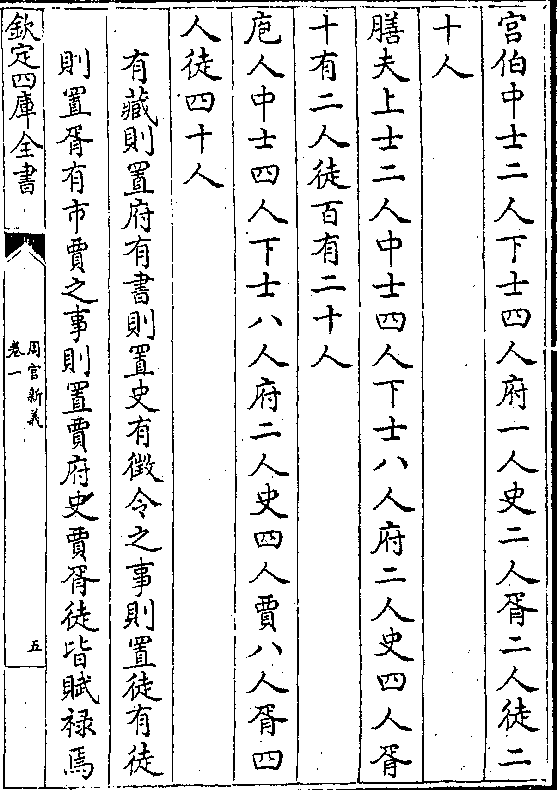 宫伯中士二人下士四人府一人史二人胥二人徒二
十人
膳夫上士二人中士四人下士八人府二人史四人胥
十有二人徒百有二十人
庖人中士四人下士八人府二人史四人賈八人胥四
人徒四十人
有藏則置府有書則置史有徵令之事則置徒有徒
則置胥有市賈之事則置賈府史賈胥徒皆賦禄焉
欽定四庫全書
周官新義
卷一
五